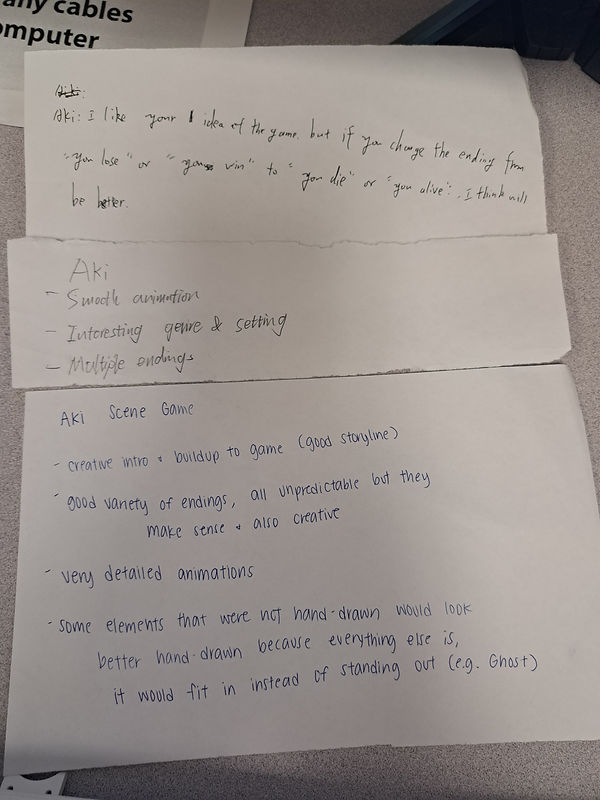 any cables
omputer
Aki:
Aki: I like your idea of the game. but if you change the ending from
"you lose" or "you vin" to "you die" or "you alive". I think will
be better.
Aki
- Smooth animation
- Interesting genre & setting
- Multiple endings
Aki Scene Game
- creative intro & buildup to game (good storyline)
- good variety of endings, all unpredictable but they
make sense & also creative
- very detailed animations
- some elements that were not hand-drawn would look
better hand-drawn because everything else is,
it would fit in instead of standing out (e.g. Ghost)